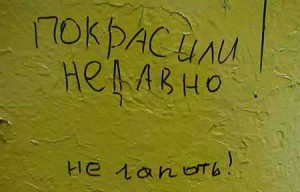 ПОКРАСИЛИ
НЕДАВНО
не лапать!